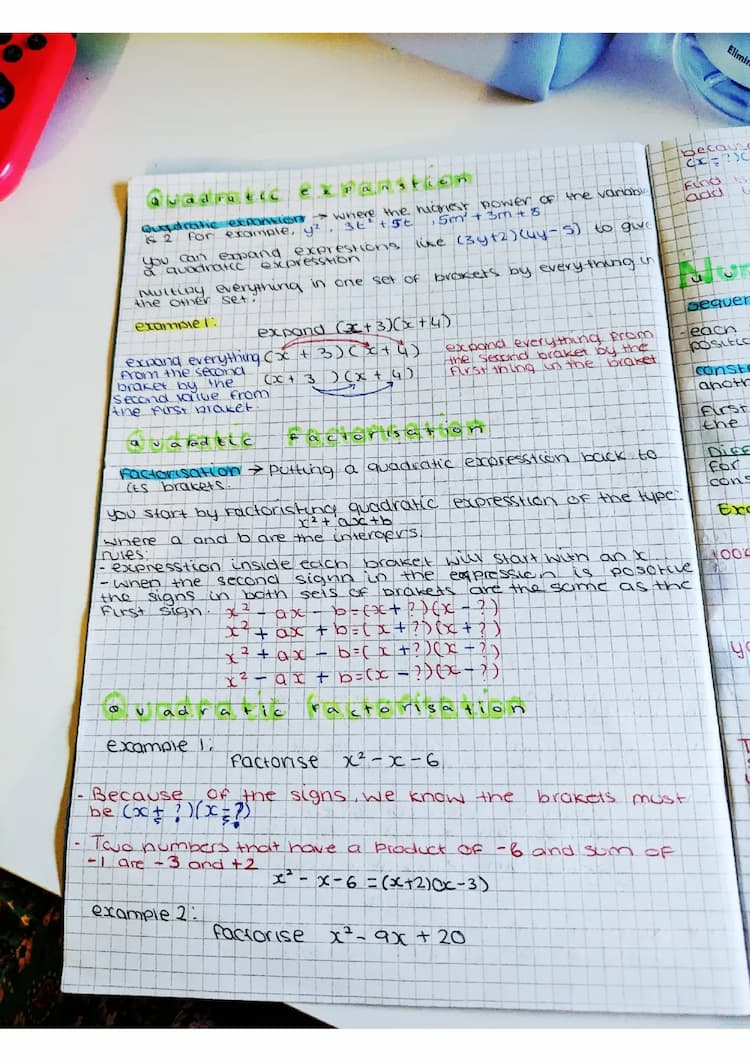 Quadratic expanstion
Quadratic expantion → where the highest power of the variable
is 2 for example, y², 3t² + 5t, 5m² + 3m + 8
you can expand exprestions like (3y+2)(4y-5) to give
a quadratic expresstion
Multiply everything in one set of brakets by everything in
the other set.
example 1:
expand (x+3)(x+4)
expand everything
from the second
braket by the
second value from
the first braket.
(x + 3)(x + 4)
(x + 3)(x + 4)
expand everything from
the second braket by the
first thing in the braket
Quadtic Factorisation
Factorisation → Putting a quadratic expresstion back to
its brakets.
you start by factoristing quadratic expresstion of the type:
x² + ax + b
where a and b are the intergers.
rules:
- expresstion inside each braket will start with an x
- when the second signn in the expression is posotive
the signs in both sets of brakets are the same as the
first sign.
x² - ax - b = (x + ?)(x - ?)
x² + ax + b = (x + ?)(x + ?)
x² + ax - b = (x + ?)(x - ?)
x² - ax + b = (x - ?)(x - ?)
Quadratic factorisation
example 1:
Factorise x² - x - 6
- Because of the signs, we know the brakets must
be (x + ?)(x - ?)
- Two numbers that have a product of -6 and sum of
-1 are -3 and +2
x² - x - 6 = (x+2)(x-3)
example 2:
factorise x² - 9x + 20
because
(x - ?)(
Find
add
Nu
Sequen
-each
positio
const
anoth
First
the
Diff
for
cons
Exa
100
Elimin